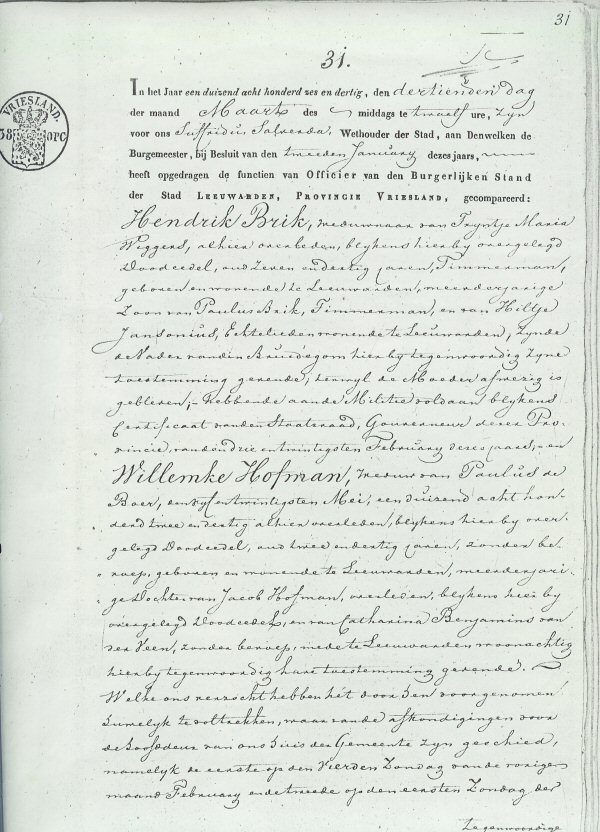 31
31.
VRIESLAND.
38 OPC
In het Jaar een duizend acht honderd zes en dertig, den dertienden dag
der maand Maart des middags te twaalf ure, zyn
voor ons Suffridus Salverda, Wethouder der Stad, aan Denwelken de
Burgemeester, bij Besluit van den tweeden January dezes jaars,
heeft opgedragen de functien van Officier van den Burgerlijken Stand
der Stad LEEUWARDEN, PROVINCIE VRIESLAND, gecompareerd:
Hendrik Brik, weduwnaar van Tryntje Maria
Wiggers, alhier overleden, blykens hierby overgelegd
Doodcedel, oud zeven en dertig jaren, Timmerman,
geboren en wonende te Leeuwarden, meerderjarige
Zoon van Paulus Brik, Timmerman, en van Hiltje
Jansonius, Echtelieden wonende te Leeuwarden, zynde
de Vader van den Bruidegom hierby tegenwoordig zyne
toestemming gevende, terwyl de Moeder afwezig is
gebleven, – Hebbende aan de Militie voldaan blykens
Certificaat van den Staatsraad, Gouverneur dezer Pro-
vincie, van den drie en twintigsten February dezes jaars, – en
Willemke Hofman, Weduw van Paulus de
Boer, den vyf en twintigsten Mei, een duizend acht hon-
derd twee en dertig alhier overleden, blykens hier by over-
gelegd Doodcedel, oud twee en dertig jaren, zonder be-
roep, geboren en wonende te Leeuwarden, meerderjari-
ge Dochter van Jacob Hofman, overleden, blykens hier by
overgelegd Doodcedel, en van Catharina Benjamins van
der Veen, zonder beroep, mede te Leeuwarden woonachtig
hierby tegenwoordig hare toestemming gevende.
Welke ons verzocht hebben het door hen voorgenomen
huwelyk te voltrekken, waar van de afkondigingen voor
de hoofddeur van ons Huis der Gemeente zyn geschied,
namelyk de eerste op den Vierden Zondag van de vorige
maand February en de tweede op den eersten Zondag der
tegenwoordige